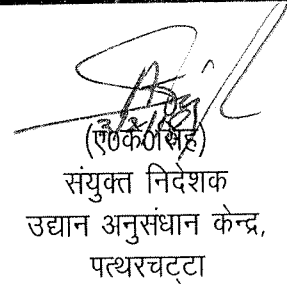 (ए0के0सिंह)
संयुक्त निदेशक
उद्यान अनुसंधान केन्द्र,
पत्थरचट्टा